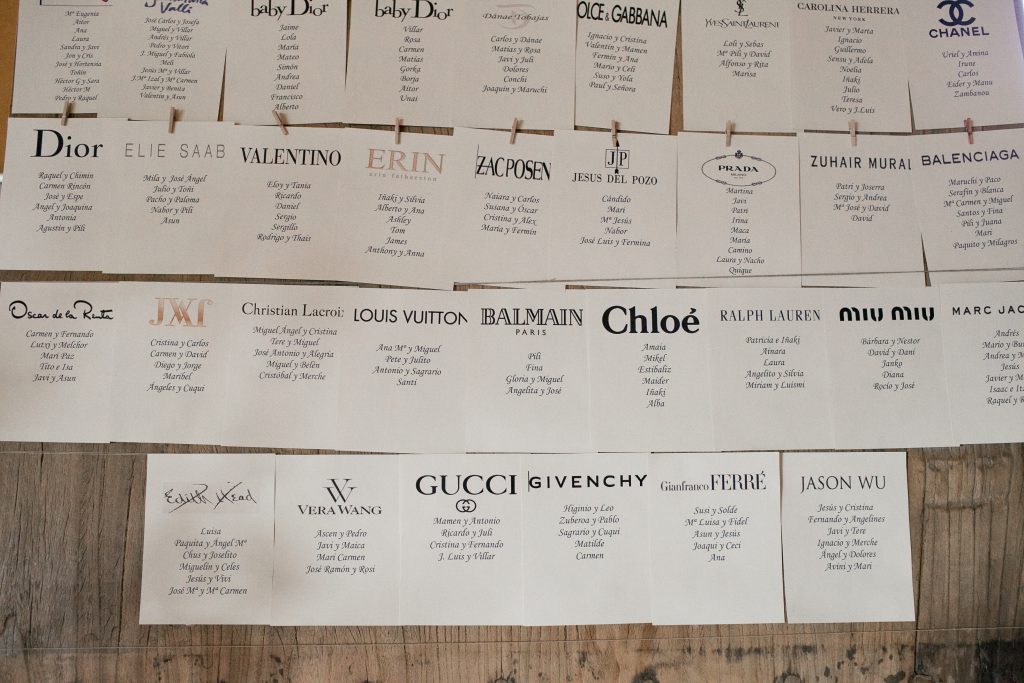 Mª Eugenia
Aitor
Ana
Laura
Sandra y Javi
Jon y Cris
José y Hortensia
Toñín
Héctor G y Sara
Héctor M
Pedro y Raquel
Valli
José Carlos y Josefa
Miguel y Villar
Andrés y Villar
Pedro y Vitori
J. Miguel y Fabiola
Meli
Jesús Mª y Villar
J.Mª Izal y Mª Carmen
Javier y Benita
Valentín y Asun
baby Dior
Jaime
Lola
María
Mateo
Simón
Andrea
Daniel
Francisco
Alberto
baby Dior
Villar
Rosa
Carmen
Matías
Gorka
Borja
Aitor
Unai
Dánae Tobajas
Carlos y Dánae
Matías y Rosa
Javi y Juli
Dolores
Conchi
Joaquín y Maruchi
DOLCE & GABBANA
Ignacio y Cristina
Valentín y Mamen
Fermín y Ana
Mario y Celi
Suso y Yola
Paul y Señora
YVES SAINT LAURENT
Loli y Sebas
Mª Pili y David
Alfonso y Rita
Marisa
CAROLINA HERRERA
NEW YORK
Javier y Marta
Ignacio
Guillermo
Sensu y Adela
Noelia
Iñaki
Julio
Teresa
Vero y J.Luis
CHANEL
Uriel y Amina
Irune
Carlos
Eider y Manu
Zambanou
Dior
Raquel y Chimin
Carmen Rincón
José y Espe
Ángel y Joaquina
Antonia
Asun
Agustín y Pili
ELIE SAAB
Mila y José Ángel
Julio y Toñi
Pacho y Paloma
Nabor y Pili
VALENTINO
Eloy y Tania
Ricardo
Daniel
Sergio
Sergillo
Rodrigo y Thais
ERIN
erin fetherston
Iñaki y Silvia
Alberto y Ana
Ashley
Tom
James
Anthony y Anna
ZAC POSEN
Naiara y Carlos
Susana y Óscar
Cristina y Alex
María y Fermín
JP
JESUS DEL POZO
Cándido
Mari
Mª Jesús
Nabor
José Luis y Fermina
PRADA
MILANO
Martina
Javi
Patri
Irina
Maca
María
Camino
Laura y Nacho
Quique
ZUHAIR MURAL
Patri y Joserra
Sergio y Andrea
Mª José y David
David
BALENCIAGA
Maruchi y Paco
Serafín y Blanca
Mª Carmen y Miguel
Santos y Fina
Pili y Juana
Mari
Paquito y Milagros
Oscar de la Renta
Carmen y Fernando
Lutxi y Melchor
Mari Paz
Tito e Isa
Javi y Asun
JXJ
Cristina y Carlos
Carmen y David
Diego y Jorge
Maribel
Ángeles y Cuqui
Christian Lacroix
Miguel Ángel y Cristina
Tere y Miguel
José Antonio y Alegría
Miguel y Belén
Cristóbal y Merche
LOUIS VUITTON
Ana Mª y Miguel
Pete y Julito
Antonio y Sagrario
Santi
BALMAIN
PARIS
Pili
Fina
Gloria y Miguel
Angelita y José
Chloé
Amaia
Mikel
Estibaliz
Maider
Iñaki
Alba
RALPH LAUREN
Patricia e Iñaki
Ainara
Laura
Angelito y Silvia
Miriam y Luismi
MIU MIU
Bárbara y Nestor
David y Dani
Janko
Diana
Rocío y José
MARC JAC
Andrés
Mario y
Andrea y
Jesús
Javier y
Isaac e
Raquel y
Edith Head
Luisa
Paquita y Ángel Mª
Chus y Joselito
Miguelín y Celes
Jesús y Vivi
José Mª y Mª Carmen
VERA WANG
Ascen y Pedro
Javi y Maica
Mari Carmen
José Ramón y Rosi
GUCCI
Mamen y Antonio
Ricardo y Juli
Cristina y Fernando
J. Luis y Villar
GIVENCHY
Higinio y Leo
Zuberoa y Pablo
Sagrario y Cuqui
Matilde
Carmen
Gianfranco FERRÉ
Susi y Solde
Mª Luisa y Fidel
Asun y Jesús
Joaqui y Ceci
Ana
JASON WU
Jesús y Cristina
Fernando y Angelines
Javi y Tere
Ignacio y Merche
Ángel y Dolores
Avini y Mari